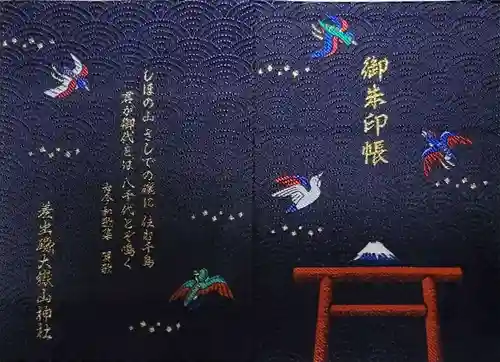 御朱印帳
しほの山 さしでの磯に 住む千鳥
君が御代をば 八千代とぞ鳴く
古今和歌集 賀歌
差出磯大嶽山神社